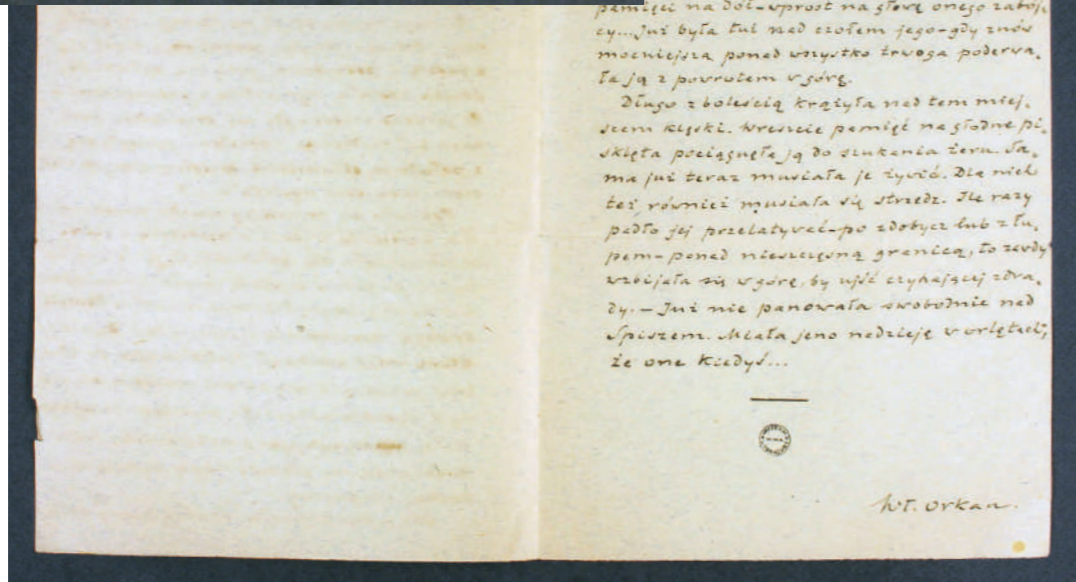 pamięci na dół-wprost na głowę onego zabój-
cy...Już była tuż nad czołem jego-gdy znów
mocniejsza ponad wszystko trwoga poderwa-
ła ją z powrotem w górę.
Długo z boleścią krążyła nad tem miej-
scem klęski. Wreszcie pamięć na głodne pi-
sklęta pociągnęła ją do szukania żeru. Sa-
ma już teraz musiała je żywić. Dla nich
też również musiała się strzedz. Ile razy
padło jej przelatywać-po zdobycz lub z łu-
pem-ponad nieszczęsną granicą, to zawdy
wzbijała się w górę, by ujść czyhającej zdra-
dy. – Już nie panowała swobodnie nad
Spiszem. Miała jeno nadzieję w orlętach,
że one kiedyś...
Wł. Orkan.